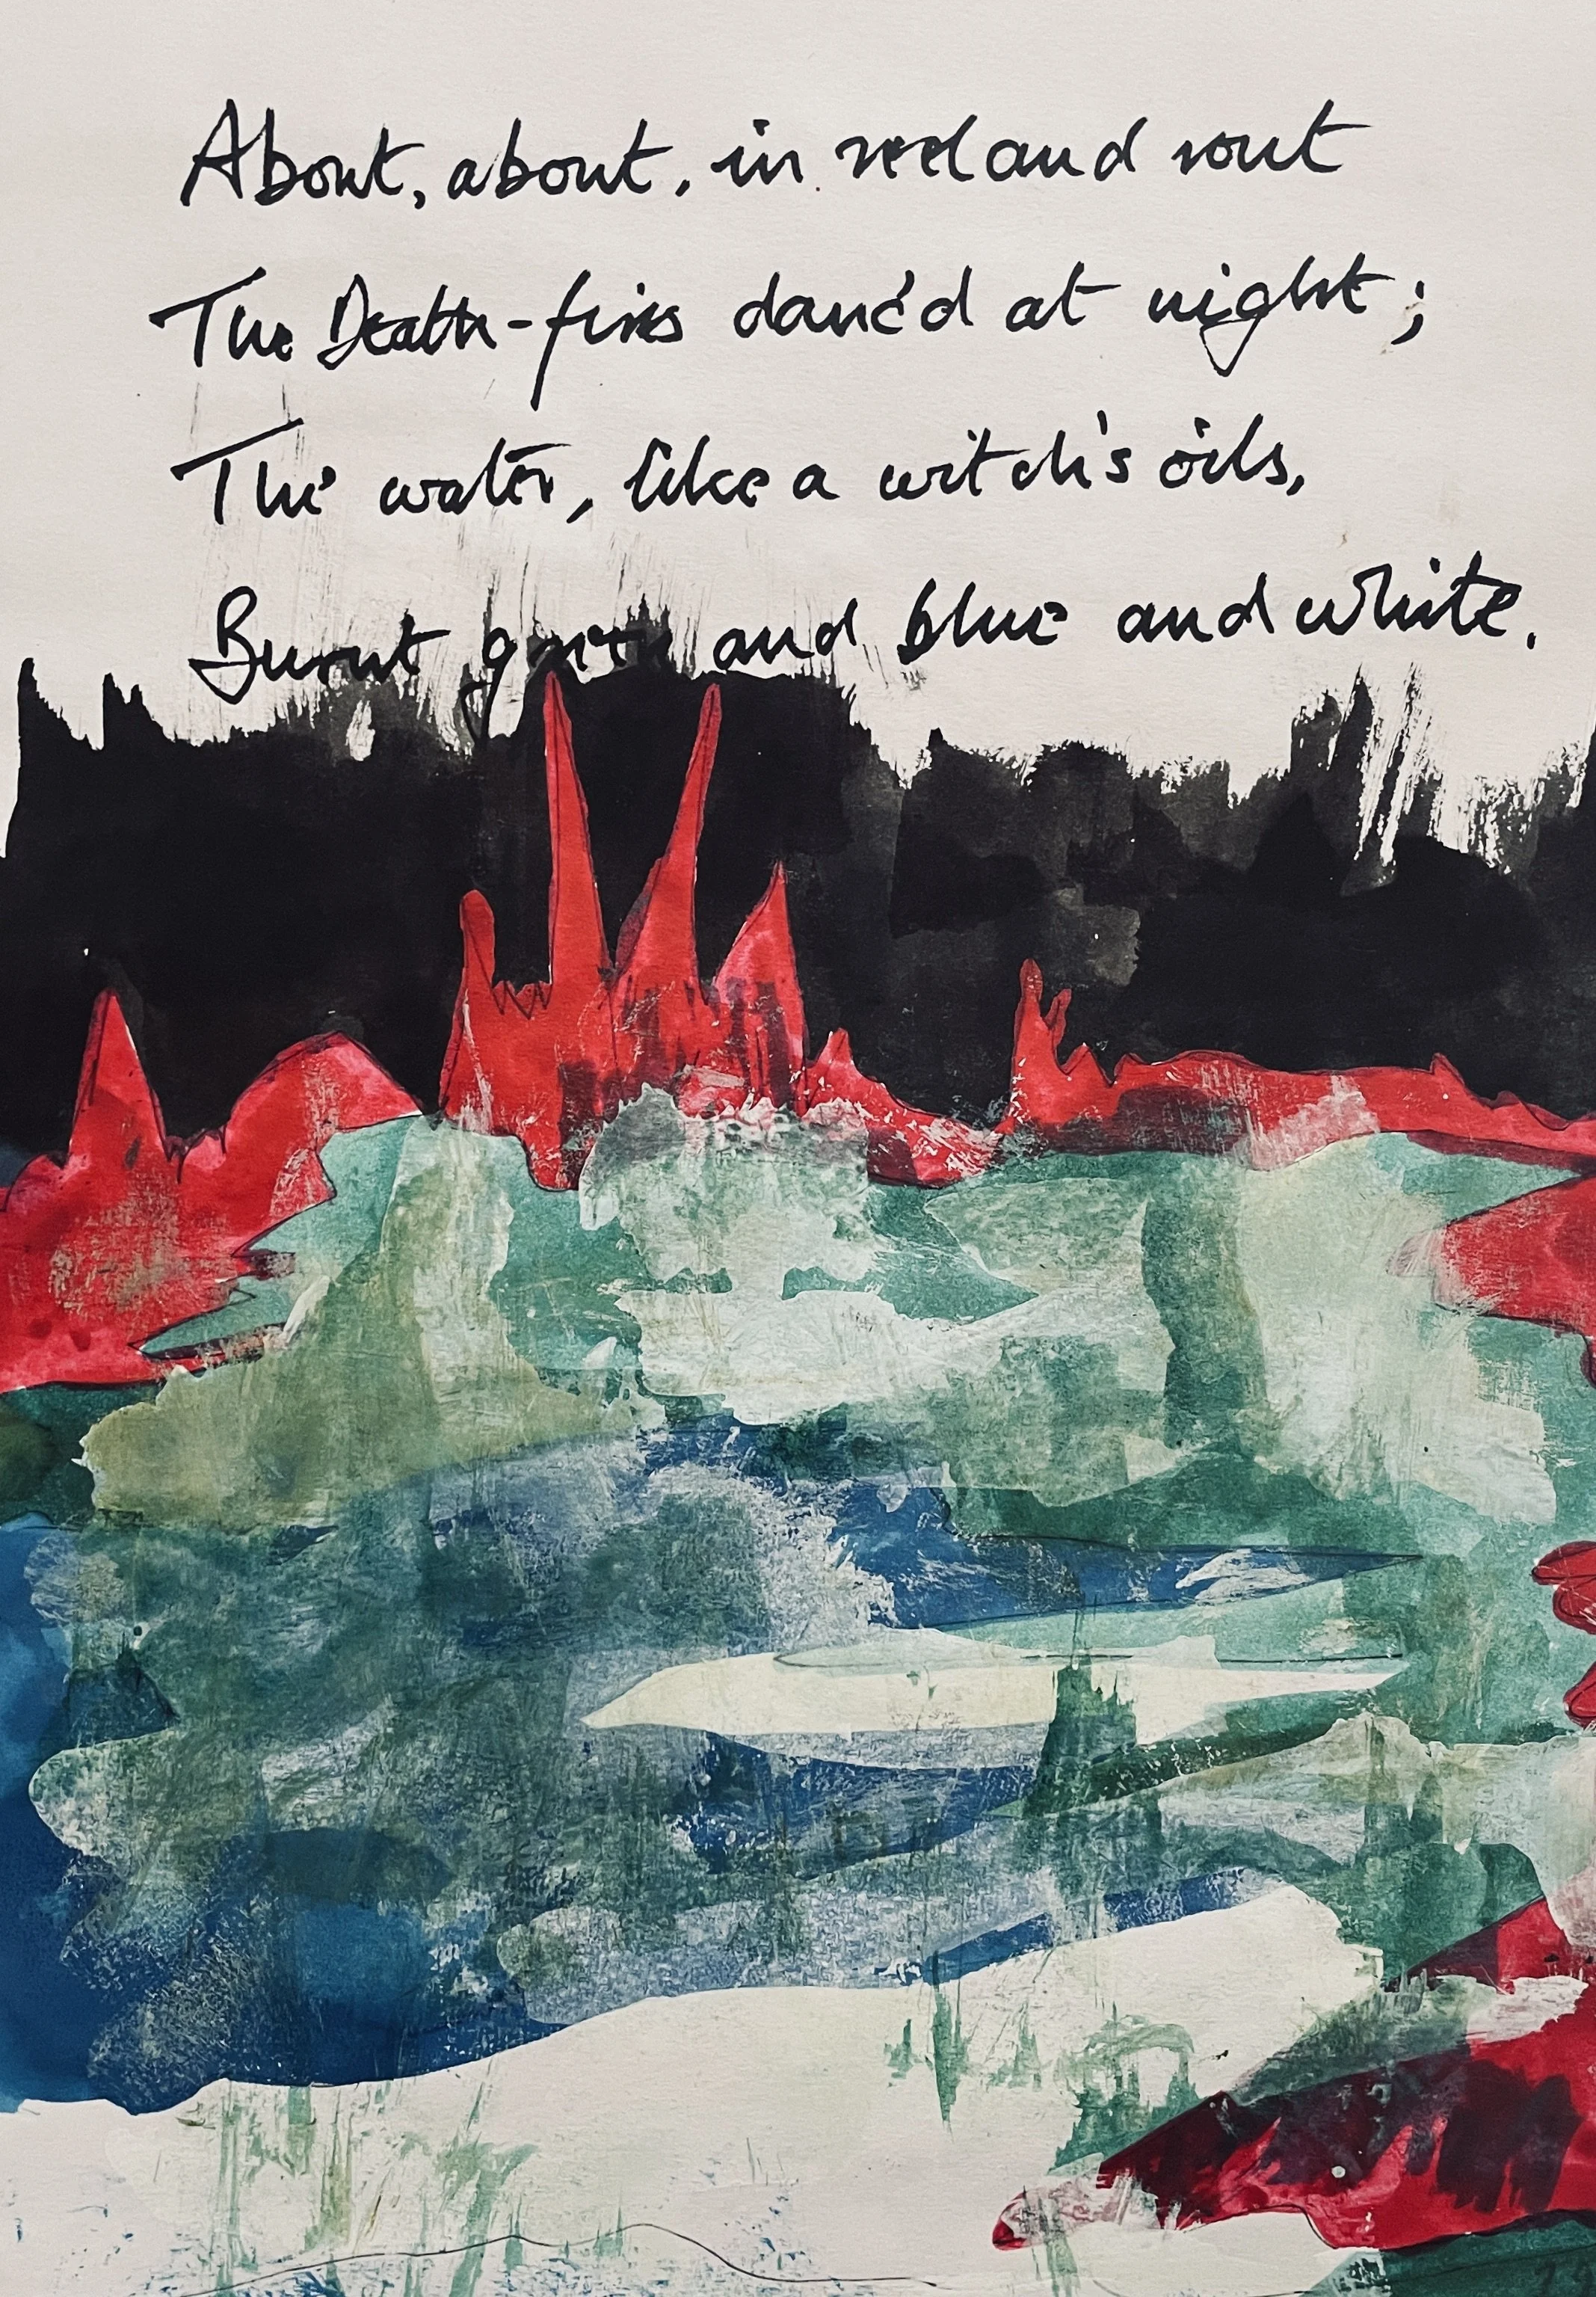 About, about, in reel and rout
The Death-fires danc'd at night;
The water, like a witch's oils,
Burnt green and blue and white.